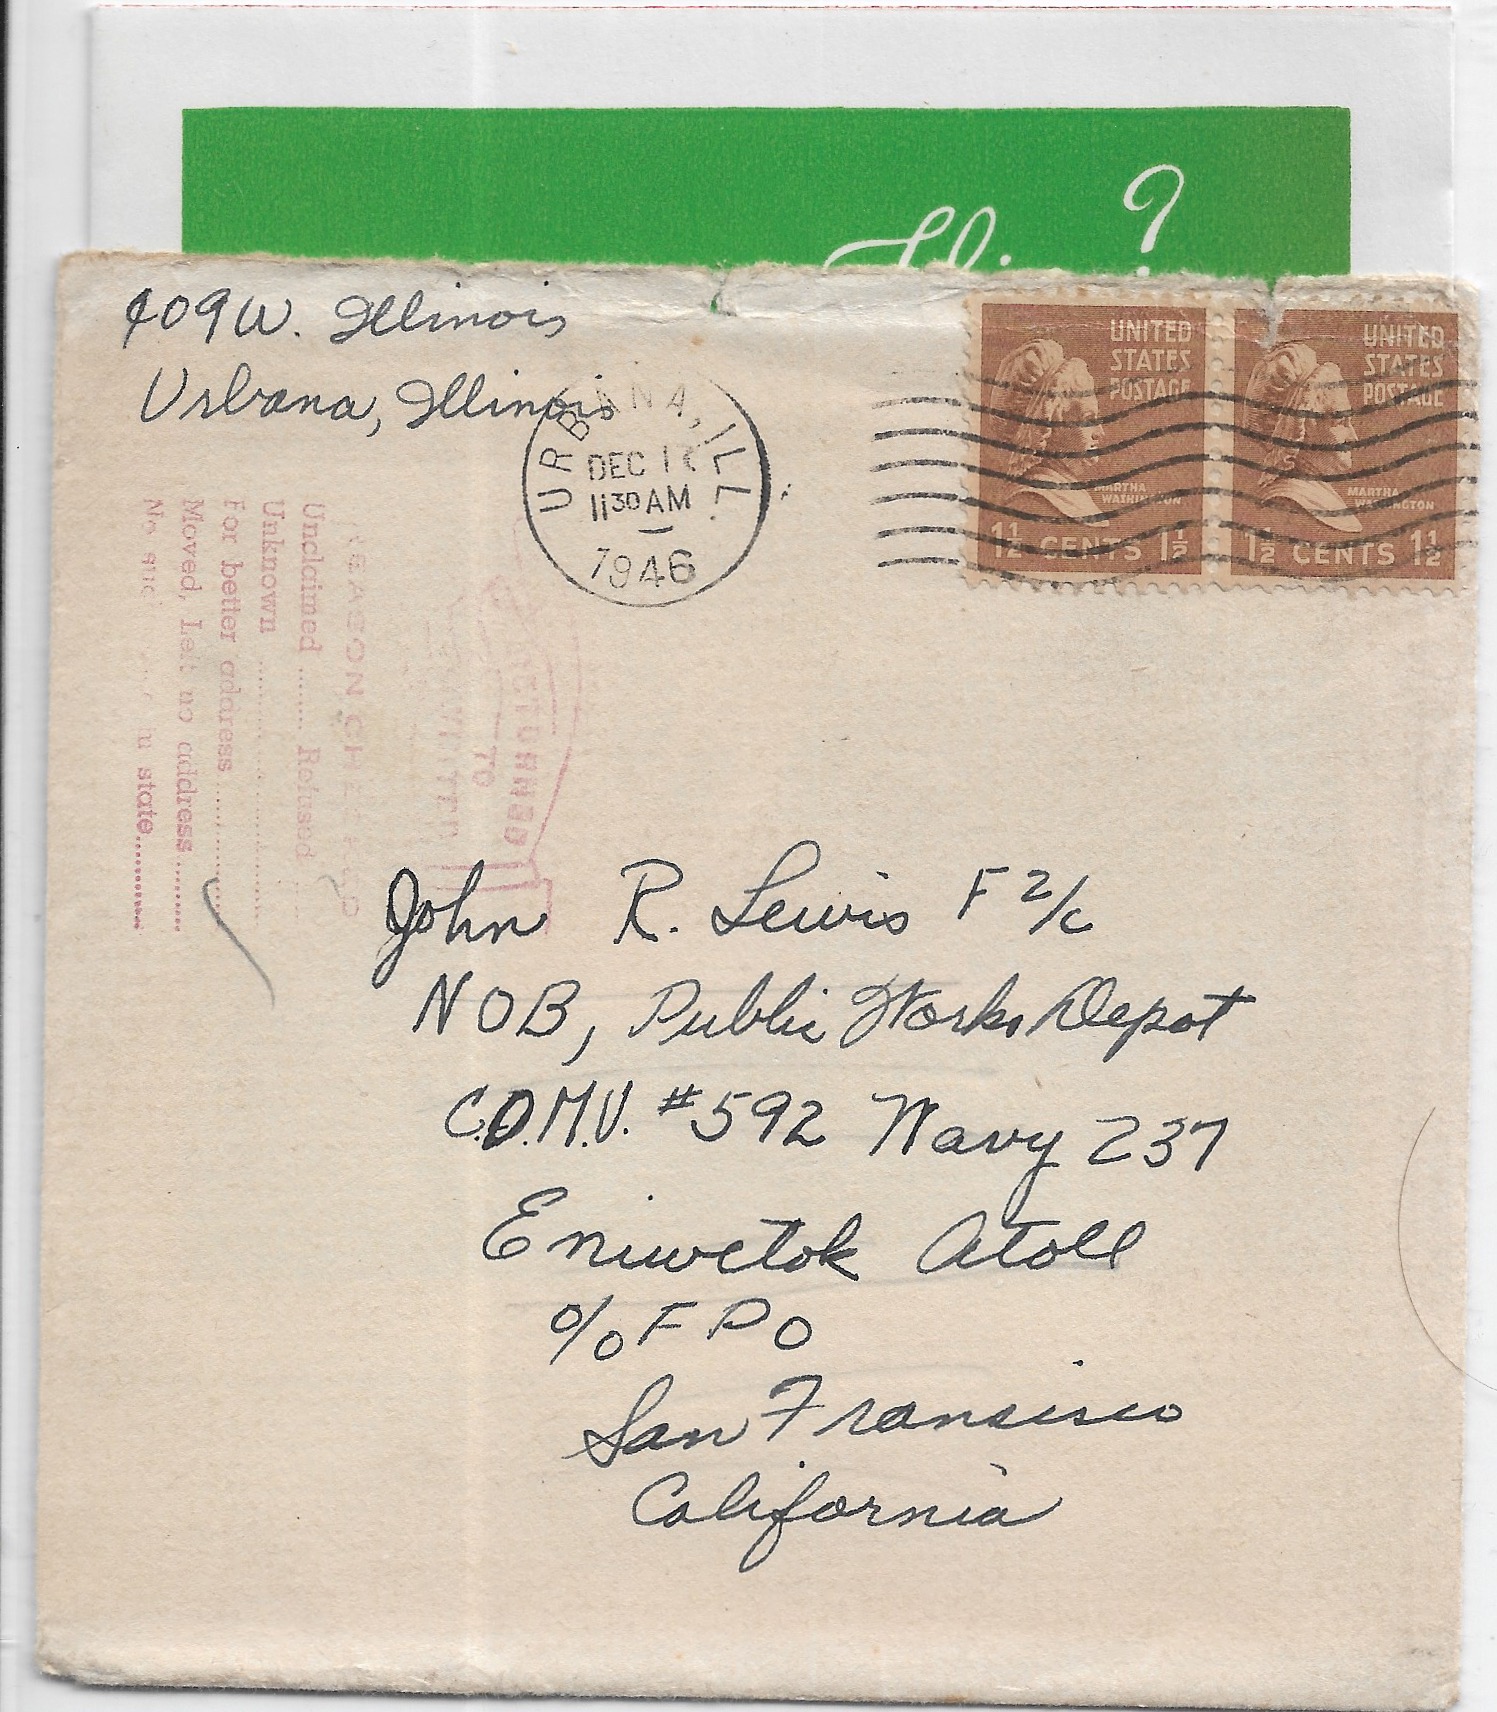 ?
409 W. Illinois
Urbana, Illinois
URBANA, ILL.
DEC 1
11 30 AM
1946
UNITED
STATES
POSTAGE
MARTHA
WASHINGTON
1½ CENTS 1½
UNITED
STATES
POSTAGE
MARTHA
WASHINGTON
1½ CENTS 1½
RETURNED
TO
REASON CHECKED
Unclaimed ........ Refused
Unknown ........
For better address ........
Moved, Left no address ........
No state ........
John R. Lewis F 2/c
NOB, Public Works Depot
C.O.M.U. #592 Navy 237
Eniwetok Atoll
% F P O
San Fransisco
California